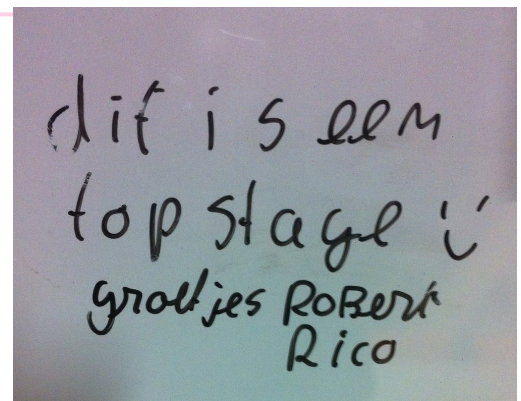 dit is een
top stage :)
groetjes RoBert
Rico